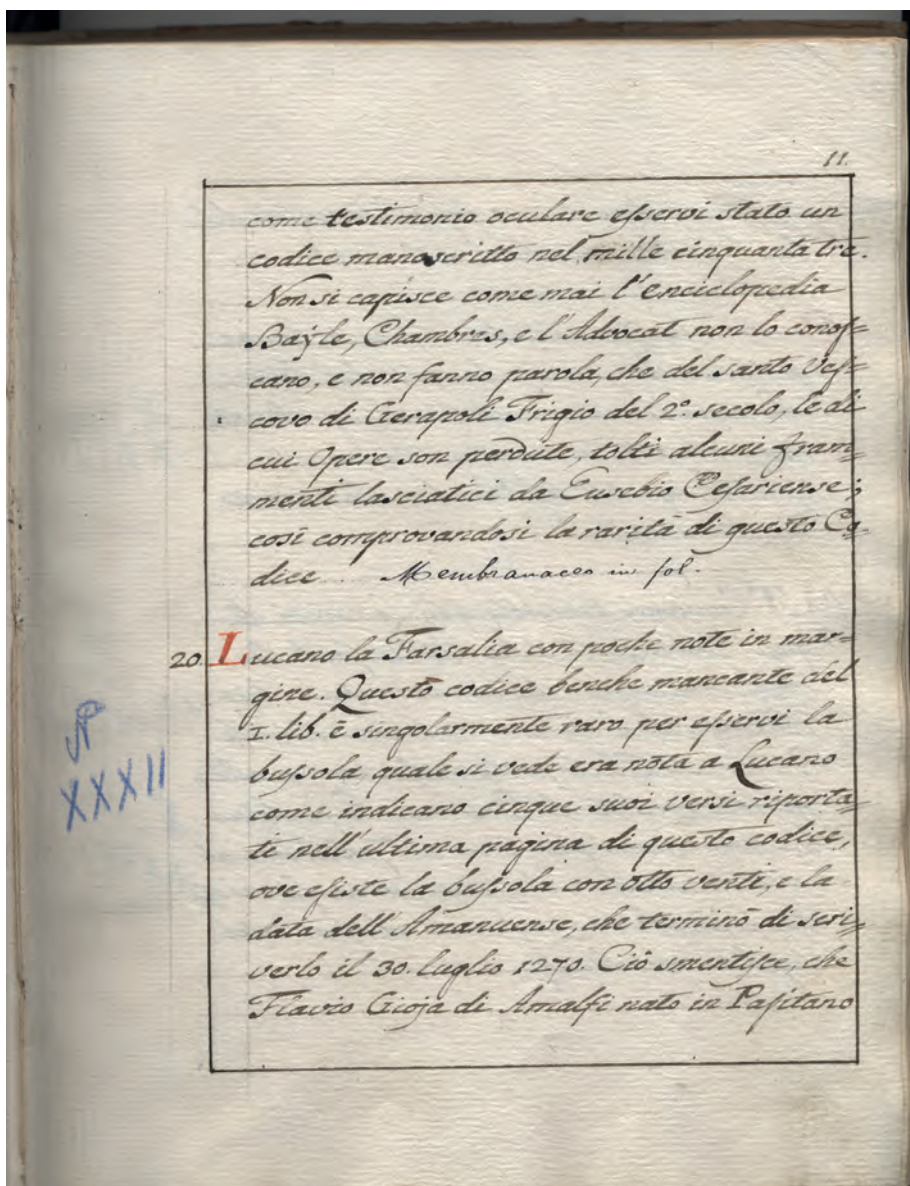 11.
come testimonio oculare esservi stato un
codice manoscritto nel mille cinquanta tre.
Non si capisce come mai l'enciclopedia
Bayle, Chambres, e l'Advocat non lo conos=
cano, e non fanno parola, che del santo Ves=
covo di Gerapoli Frigio del 2º secolo, le di
cui Opere son perdute, tolti alcuni fram=
menti lasciatici da Eusebio Cesariense;
così comprovandosi la rarità di questo Co=
dice... Membranaceo in fol.
20. Lucano la Farsalia con poche note in mar=
gine. Questo codice benche mancante del
I. lib. è singolarmente raro per esservi la
bussola quale si vede era nota a Lucano
come indicano cinque suoi versi riporta=
ti nell'ultima pagina di questo codice,
ove esiste la bussola con otto venti, e la
data dell'Amanuense, che terminò di scri=
verlo il 30. luglio 1270. Ciò smentisce, che
Flavio Gioja di Amalfi nato in Pasitano
XXXII